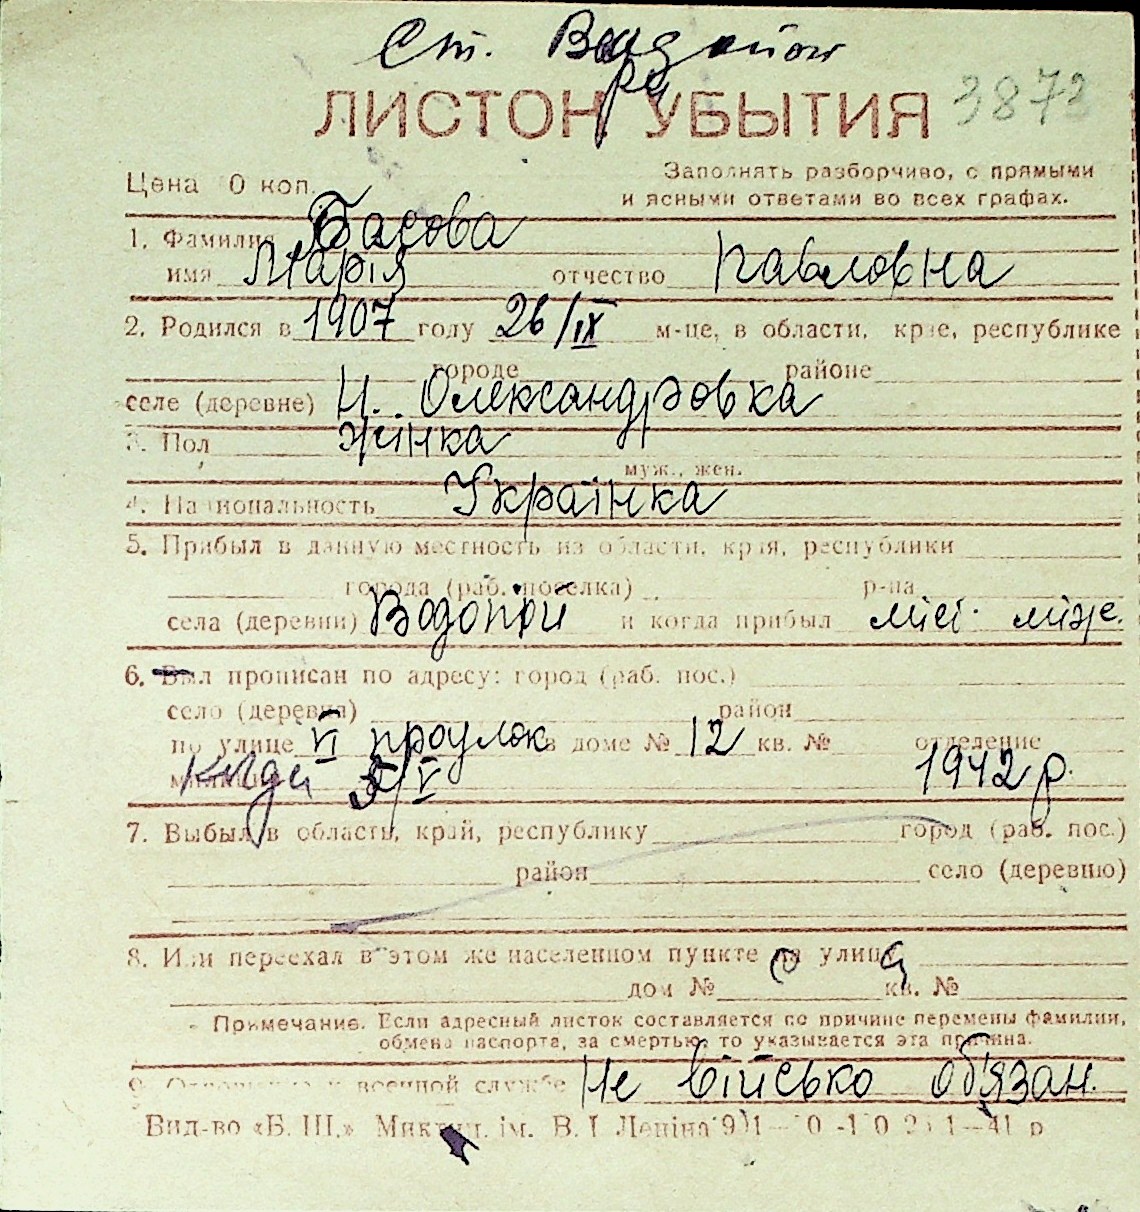 Ст. Водопой
ЛИСТОК УБЫТИЯ 3873
Цена 0 коп.
Заполнять разборчиво, с прямыми
и ясными ответами во всех графах.
1. Фамилия Басова
имя Марія отчество Павловна
2. Родился в 1907 году 26/IX м-це, в области, крае, республике
городе районе
селе (деревне) Н. Олександровка
3. Пол жінка
муж., жен.
4. Национальность Українка
5. Прибыл в данную местность из области, края, республики
города (раб. поселка) р-на
села (деревни) Водопой и когда прибыл міс. жи
6. Был прописан по адресу: город (раб. пос.)
село (деревня) район
по улице VI проулок в доме № 12 кв. № отделение
5/V 1942 р.
7. Выбыл в область, край, республику город (раб. пос.)
район село (деревню)
8. Или переехал в этом же населенном пункте на улицу
дом № кв. №
Примечание. Если адресный листок составляется по причине перемены фамилии,
обмена паспорта, за смертью, то указывается эта причина.
9. Отношение к военной службе Не військо обязан.
Вид-во «Б. Ш.» Микол. ім. В. І. Леніна